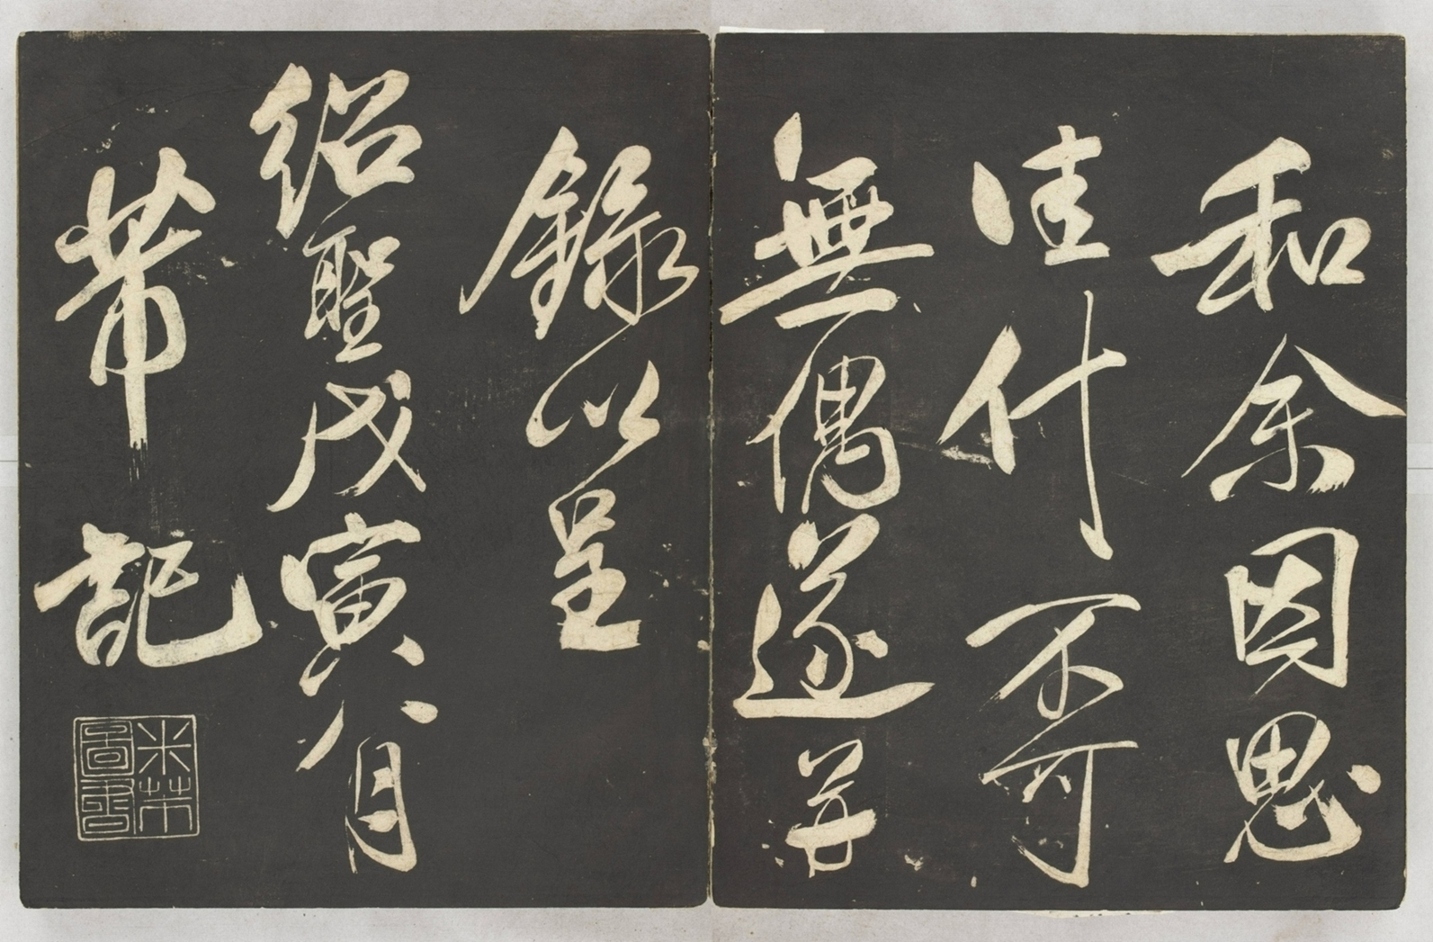 和余因思
佳什不可
無偶遂并
錄以呈
紹聖戊寅八月
芾記
米芾